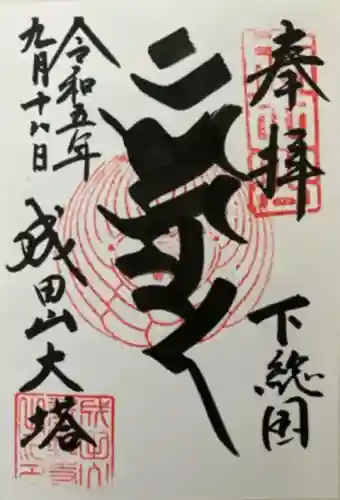 奉拝
下総国
令和五年
九月十八日
成田山大塔